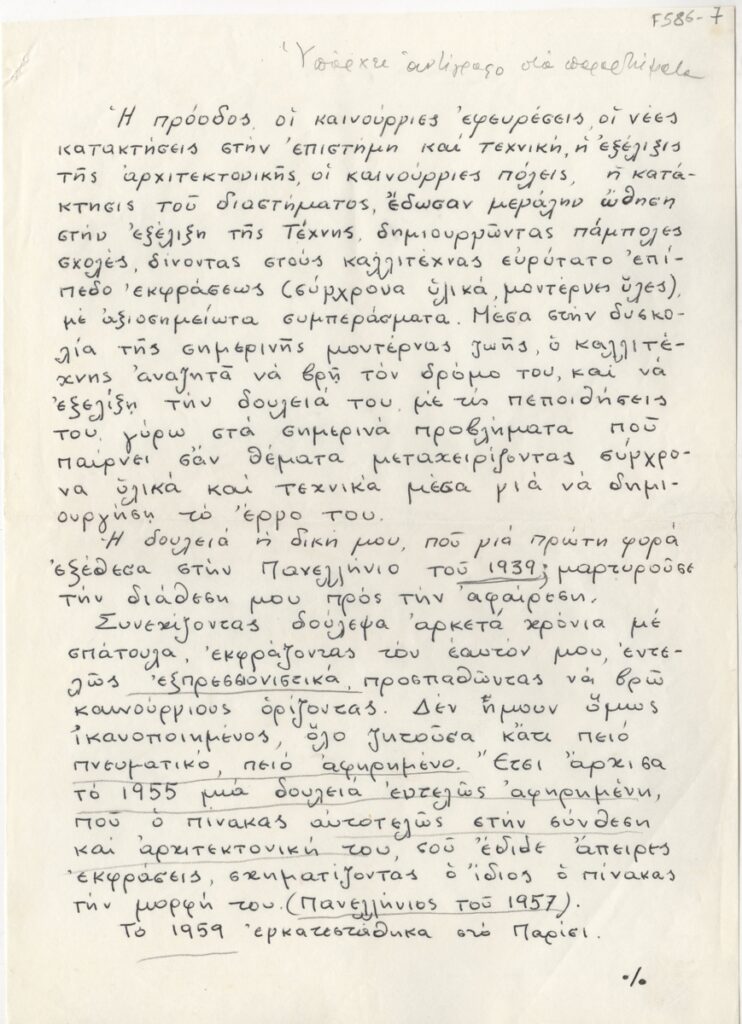 F586-7
Ὑπάρχει ἀντίγραφο στὰ παραρτήματα
Ἡ πρόοδος, οἱ καινούργιες ἐφευρέσεις, οἱ νέες
κατακτήσεις στὴν ἐπιστήμη καὶ τεχνική, ἡ ἐξέλιξις
τῆς ἀρχιτεκτονικῆς, οἱ καινούργιες πόλεις, ἡ κατά-
κτησις τοῦ διαστήματος, ἔδωσαν μεγάλην ὤθηση
στὴν ἐξέλιξη τῆς Τέχνης, δημιουργῶντας πάμπολες
σχολές, δίνοντας στοὺς καλλιτέχνας εὐρύτατο ἐπί-
πεδο ἐκφράσεως (σύγχρονα ὑλικά, μοντέρνες ὕλες),
μὲ ἀξιοσημείωτα συμπεράσματα. Μέσα στὴν δυσκο-
λία τῆς σημερινῆς μοντέρνας ζωῆς, ὁ καλλιτέ-
χνης ἀναζητᾶ νὰ βρῇ τὸν δρόμο του, καὶ νὰ
ἐξελίξῃ τὴν δουλειά του μὲ τὶς πεποιθήσεις
του γύρω στὰ σημερινὰ προβλήματα ποῦ
παίρνει σὰν θέματα μεταχειρίζοντας σύγχρο-
να ὑλικὰ καὶ τεχνικὰ μέσα γιὰ νὰ δημι-
ουργήσῃ τὸ ἔργο του.
Ἡ δουλειὰ ἡ δική μου, ποῦ γιὰ πρώτη φορὰ
ἐξέθεσα στὴν Πανελλήνιο τοῦ 1939, μαρτυροῦσε
τὴν διάθεση μου πρὸς τὴν ἀφαίρεση.
Συνεχίζοντας δούλεψα ἀρκετὰ χρόνια μὲ
σπάτουλα, ἐκφράζοντας τὸν ἑαυτόν μου, ἐντε-
λῶς ἐξπρεσσονιστικά, προσπαθῶντας νὰ βρῶ
καινούργιους ὁρίζοντας. Δὲν ἤμουν ὅμως
ἱκανοποιημένος, ὅλο ζητοῦσα κάτι πειὸ
πνευματικό, πειὸ ἀφηρημένο. Ἔτσι ἄρχισα
τὸ 1955 μιὰ δουλειὰ ἐντελῶς ἀφηρημένη,
ποῦ ὁ πίνακας αὐτοτελῶς στὴν σύνθεση
καὶ ἀρχιτεκτονική του, σοῦ ἔδιδε ἄπειρες
ἐκφράσεις, σχηματίζοντας ὁ ἴδιος ὁ πίνακας
τὴν μορφή του. (Πανελλήνιος τοῦ 1957).
Τὸ 1959 ἐγκατεστάθηκα στὸ Παρίσι.
./.